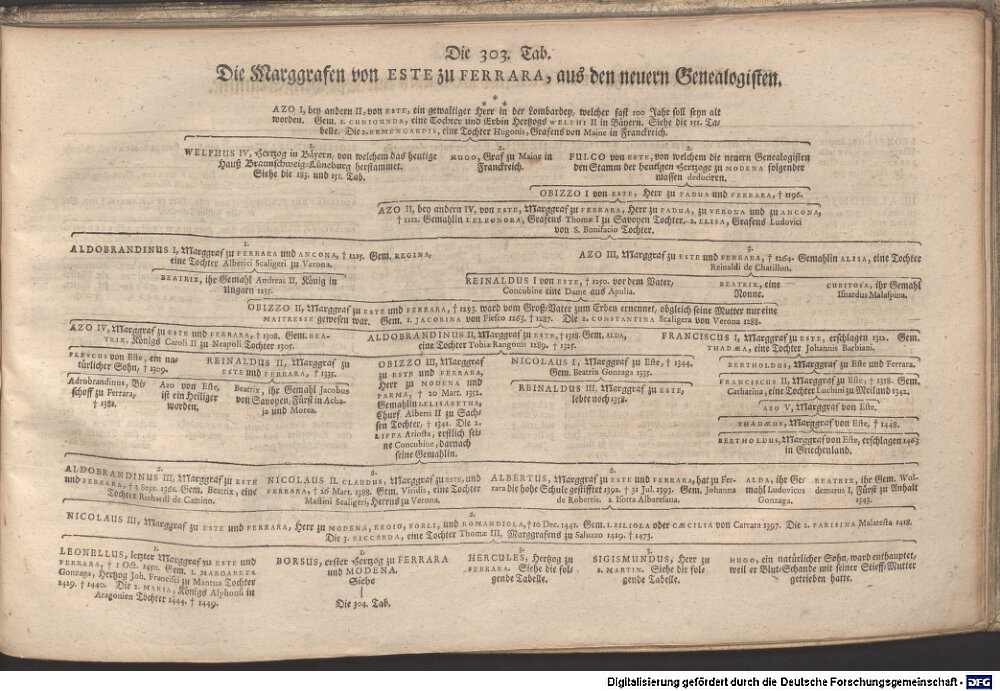 Die 303. Tab.
Die Marggrafen von ESTE zu FERRARA, aus den neuern Genealogisten.
AZO I, bey andern II, von ESTE, ein gewaltiger Herr in der Lombardey, welcher fast 100 Jahr soll seyn alt
worden. Gem. 1. CUNIGUNDA, eine Tochter und Erbin Hertzogs WELPHI II in Bäyern. Siehe die 151. Ta-
belle. Die 2. ERMENGARDIS, eine Tochter Hugonis, Grafens von Maine in Franckreich.
1.
WELPHUS IV, Hertzog in Bäyern, von welchem das heutige
Hauß Braunschweig-Lüneburg herstammet.
Siehe die 183. und 151. Tab.
2.
HUGO, Graf zu Maine in
Franckreich.
2.
FULCO von ESTE, von welchem die neuern Genealogisten
den Stamm der heutigen Hertzoge zu MODENA folgender
massen deduciren.
OBIZZO I von ESTE, Herr zu PADUA und FERRARA, † 1196.
AZO II, bey andern IV, von ESTE, Marggraf zu FERRARA, Herr zu PADUA, zu VERONA und zu ANCONA,
† 1212. Gemahlin 1. ELEONORA, Grafens Thomæ I zu Savoyen Tochter. 2. ELISA, Grafens Ludovici
von S. Bonifacio Tochter.
1.
ALDOBRANDINUS I, Marggraf zu FERRARA und ANCONA, † 1215. Gem. REGINA,
eine Tochter Alberici Scaligeri zu Verona.
3.
AZO III, Marggraf zu ESTE und FERRARA, † 1264. Gemahlin ALISA, eine Tochter
Reinaldi de Chatillon.
BEATRIX, ihr Gemahl Andreas II, König in
Ungorn 1235.
REINALDUS I von ESTE, † 1250. vor dem Vater,
Concubine eine Dame aus Apulia.
BEATRIX, eine
Nonne.
CUBITOSA, ihr Gemahl
Isnardus Malaspina.
OBIZZO II, Marggraf zu ESTE und FERRARA, † 1293. ward vom Groß-Vater zum Erben ernennet, obgleich seine Mutter nur eine
MAITRESSE gewesen war. Gem. 1. JACOBINA von Fiesco 1263, † 1287. Die 2. CONSTANTINA Scaligera von Verona 1288.
AZO IV, Marggraf zu ESTE und FERRARA, † 1308. Gem. BEA-
TRIX, Königs Caroli II zu Neapoli Tochter 1305.
ALDOBRANDINUS II, Marggraf zu ESTE, † 1318. Gem. ALDA,
eine Tochter Tobiæ Rangonis 1289. † 1325.
FRANCISCUS I, Marggraf zu ESTE, erschlagen 1312. Gem.
THADÆA, eine Tochter Johannis Barbiani.
FRESCUS von Este, ein na-
türlicher Sohn, † 1309.
REINALDUS II, Marggraf zu
ESTE und FERRARA, † 1335.
OBIZZO III, Marggraf
zu ESTE und FERRARA,
Herr zu MODENA und
PARMA, † 20 Mart. 1352.
Gemahlin 1. ELISABETHA,
Churf. Alberti II zu Sach-
sen Tochter, † 1341. Die 2.
LIPPA Ariosta, erstlich sei-
ne Concubine, darnach
seine Gemahlin.
NICOLAUS I, Marggraf zu Este, † 1344.
Gem. Beatrix Gonzaga 1335.
BERTHOLDUS, Marggraf zu Este und Ferrara.
Adrobrandinus, Bi-
schoff zu Ferrara,
† 1381.
Azo von Este,
ist ein Heiliger
worden.
Beatrix, ihr Gemahl Jacobus
von Savoyen, Fürst in Acha-
ja und Morea.
REINALDUS III, Marggraf zu ESTE,
lebte noch 1358.
FRANCISCUS II, Marggraf zu Este, † 1358. Gem.
Catharina, eine Tochter Luchini zu Meiland 1342.
AZO V, Marggraf von Este.
THADÆUS, Marggraf von Este, † 1448.
BERTHOLDUS, Marggraf von Este, erschlagen 1463
in Griechenland.
2.
ALDOBRANDINUS III, Marggraf zu ESTE
und FERRARA, † 3 Sept. 1361. Gem. Beatrix, eine
Tochter Richardi de Camino.
2.
NICOLAUS II. CLAUDUS, Marggraf zu ESTE und
FERRARA, † 26 Mart. 1388. Gem. Viridis, eine Tochter
Mastini Scaligeri, Herrns zu Verona.
2.
ALBERTUS, Marggraf zu ESTE und FERRARA, hat zu Fer-
rara die hohe Schule gestifftet 1392. † 31 Jul. 1393. Gem. Johanna
de Robertis. 2. Isotta Albaresana.
ALDA, ihr Ge-
mahl Ludovicus
Gonzaga.
BEATRIX, ihr Gem. Wol-
demarus I, Fürst zu Anhalt
1343.
2.
NICOLAUS III, Marggraf zu ESTE und FERRARA, Herr zu MODENA, REGIO, FORLI, und ROMANDIOLA, † 10 Dec. 1441. Gem. 1. ZILIOLA oder CÆCILIA von Carrara 1397. Die 2. PARISINA Malatesta 1418.
Die 3. RICCARDA, eine Tochter Thomæ III, Marggrafens zu Saluzzo 1429. † 1473.
LEONELLUS, letzter Marggraf zu ESTE und
FERRARA, † 1 Oct. 1450. Gem. 1. MARGARETA
Gonzaga, Hertzog Joh. Francisci zu Mantua Tochter
1429. † 1440. Die 2. MARIA, Königs Alphonsi in
Aragonien Tochter 1444. † 1449.
BORSUS, erster Hertzog zu FERRARA
und MODENA.
Siehe
Die 304. Tab.
3.
HERCULES, Hertzog zu
FERRARA. Siehe die fol-
gende Tabelle.
3.
SIGISMUNDUS, Herr zu
S. MARTIN. Siehe die fol-
gende Tabelle.
HUGO, ein natürlicher Sohn, ward enthauptet,
weil er Blut-Schande mit seiner Stieff-Mutter
getrieben hatte.
Digitalisierung gefördert durch die Deutsche Forschungsgemeinschaft - DFG